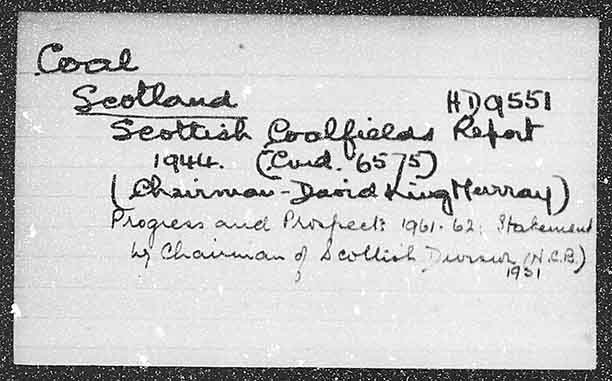 Coal
Scotland HD9551
Scottish Coalfields Report
1944. (Cmd. 6575)
(Chairman - David King Murray)
Progress and Prospects 1961-62: Statement
by Chairman of Scottish Division (N.C.B.)
1951